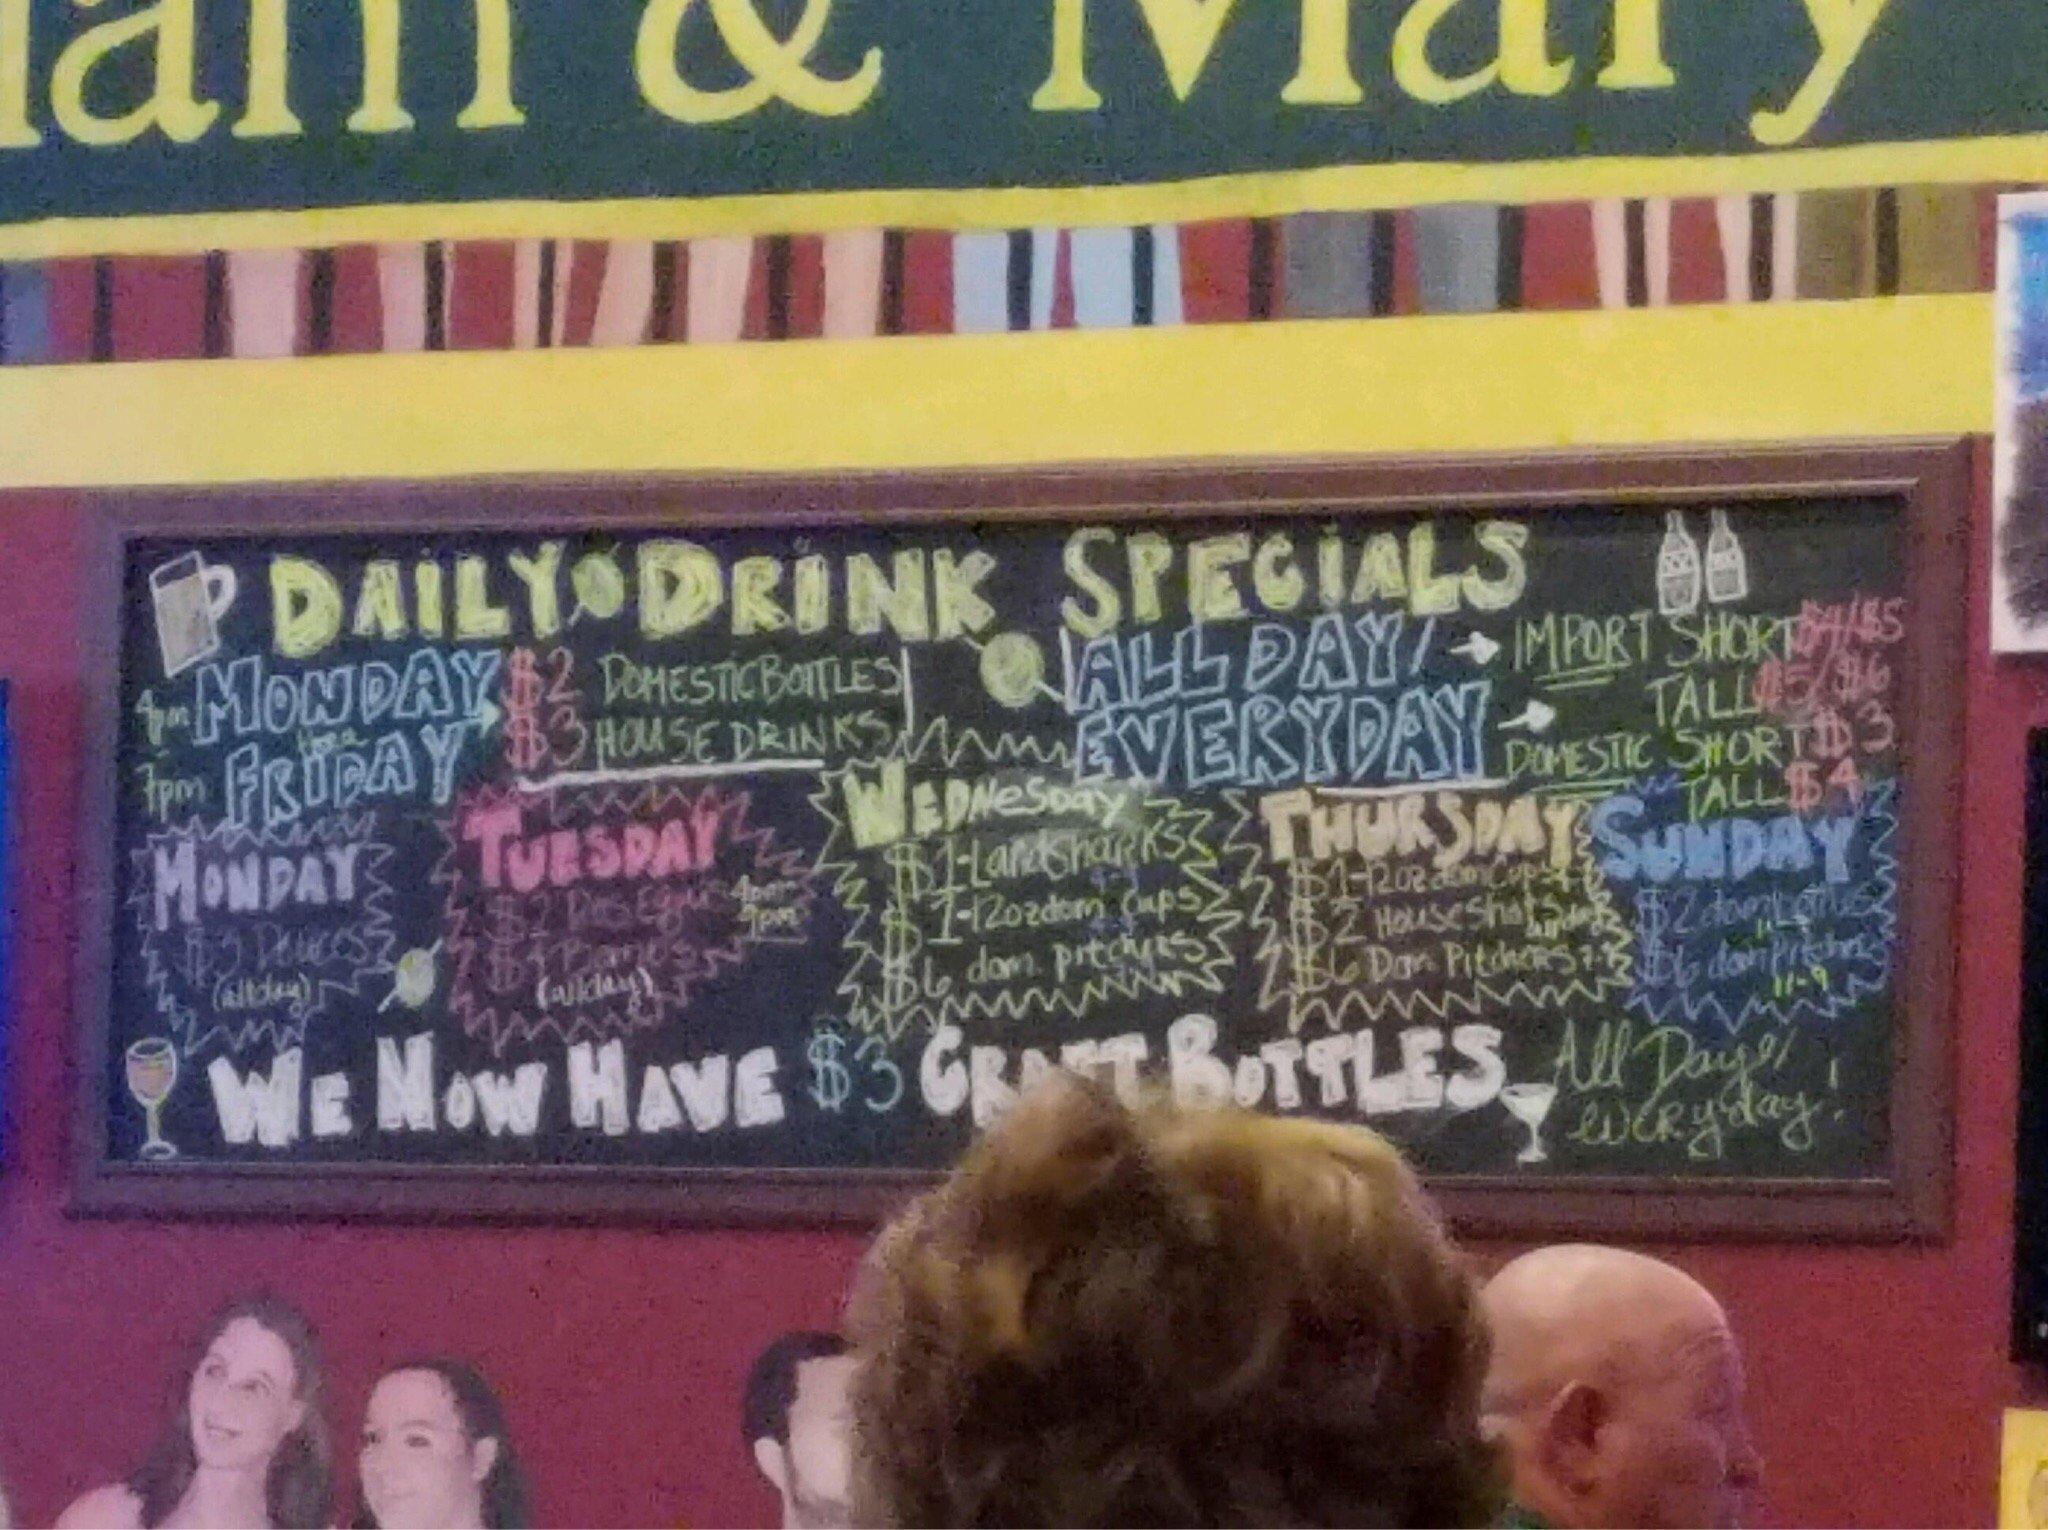 & Mary
DAILY DRINK SPECIALS
4pm MONDAY $2 DOMESTIC BOTTLES
7pm FRIDAY $3 HOUSE DRINKS
ALL DAY/
EVERYDAY
IMPORT SHORT $4/$5
TALL $5/$6
DOMESTIC SHORT $3
TALL $4
MONDAY
(allday)
TUESDAY
$2 Dos Equis 4pm
9pm
(allday)
WEDNESDAY
$1-Landsharks
$1-12oz dom cups
$6 dom. pitchers
THURSDAY
$1-12oz dom cups
$2 House Shots
$6 Dom Pitchers
SUNDAY
$2 dom bottles
$6 dom Pitchers
11-9
WE NOW HAVE $3 CRAFT BOTTLES All Day/
everyday!